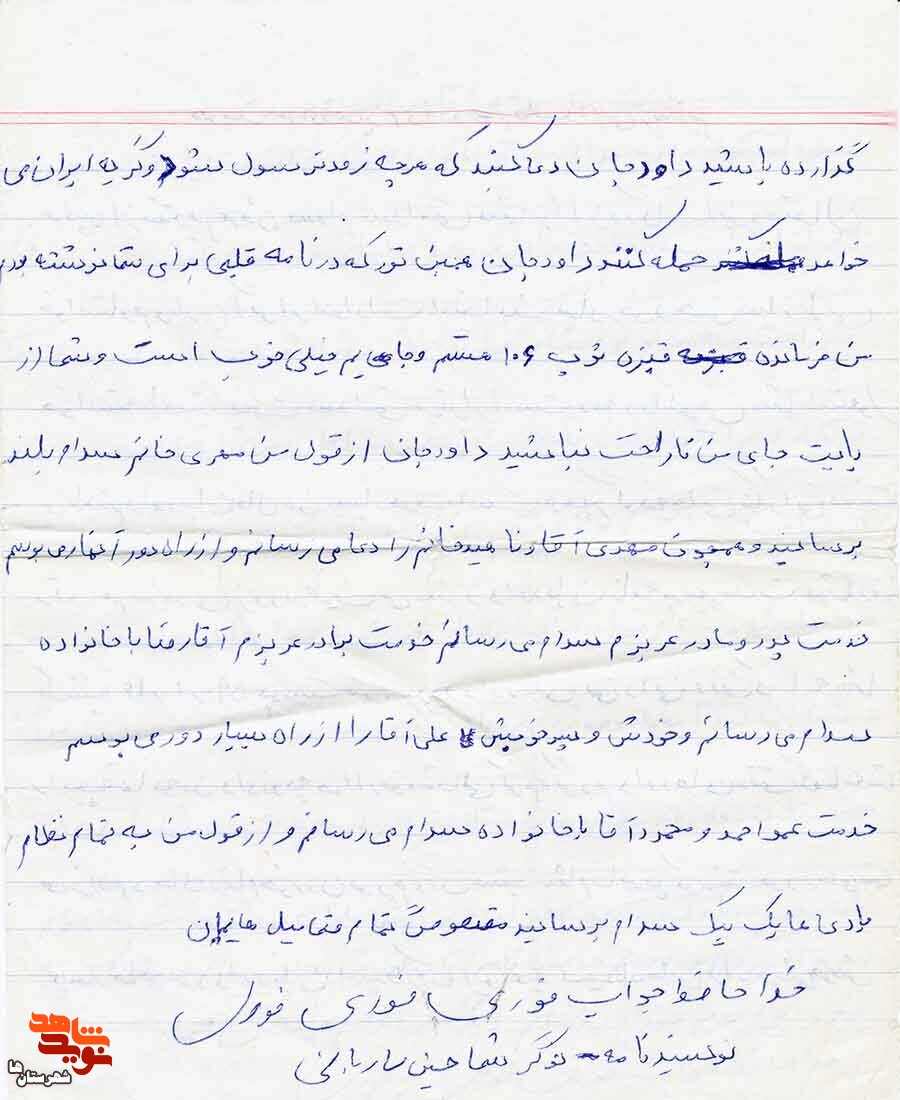 گذارده باشید داودجان دعا کنید که هرچه زودتر مسول شود وگر به ایران می
خواهد حمله کنند داودجان همین تور که در نامه قلبی برای شما نوشته بودم
من فرمانده قبزه توپ ۱۰۶ هستم و جاهیم خیلی خوب است و شما از
بابت جای من ناراحت نباشید داودجان از قول من مهری خانم سلام بلند
برسانید و همچون مهدی آقا و ناهید خانم را دعا می رسانم و از راه دور آنها را می بوسم
خدمت پدر و مادر عزیزم سلام می رسانم خدمت برادر عزیزم آقا رضا با خانواده
سلام می رسانم و خودش و پسر خوبش علی آقا را از راه بسیار دور می بوسم
خدمت عمو احمد و محمود آقا با خانواده سلام می رسانم و از قول من به تمام نظام
بادی ها یک یک سلام برسانید مقصوصاً تمام فامیل هایمان
خدا حافظ جواب فوری فوری فوری
نویسنده نامه نوکر شما حسین ساربانی
نوید شاهد
شهرستان‌ها